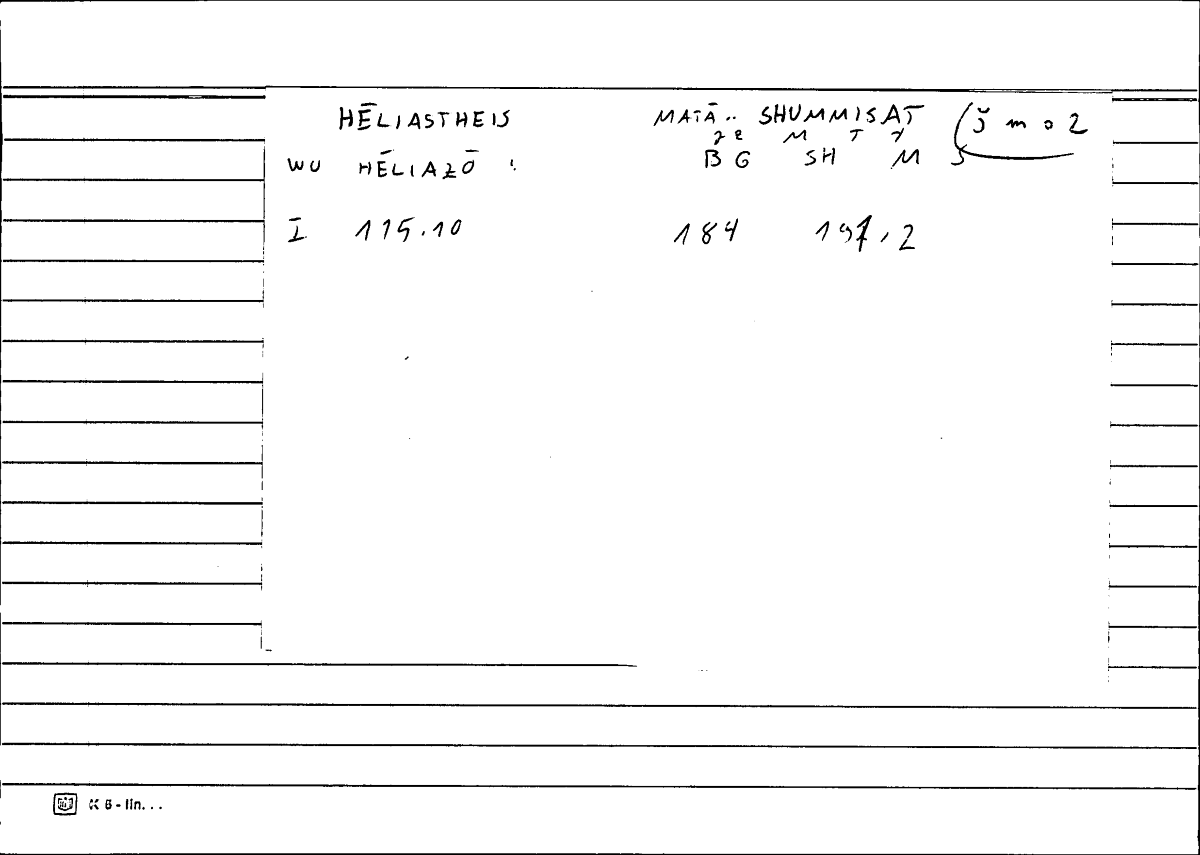 HĒLIASTHEIS MATĀ.. SHUMMISAT (š m o 2
WU HĒLIAZŌ : B G SH M S
I 115.10 184 197,2
K 6 - lin...